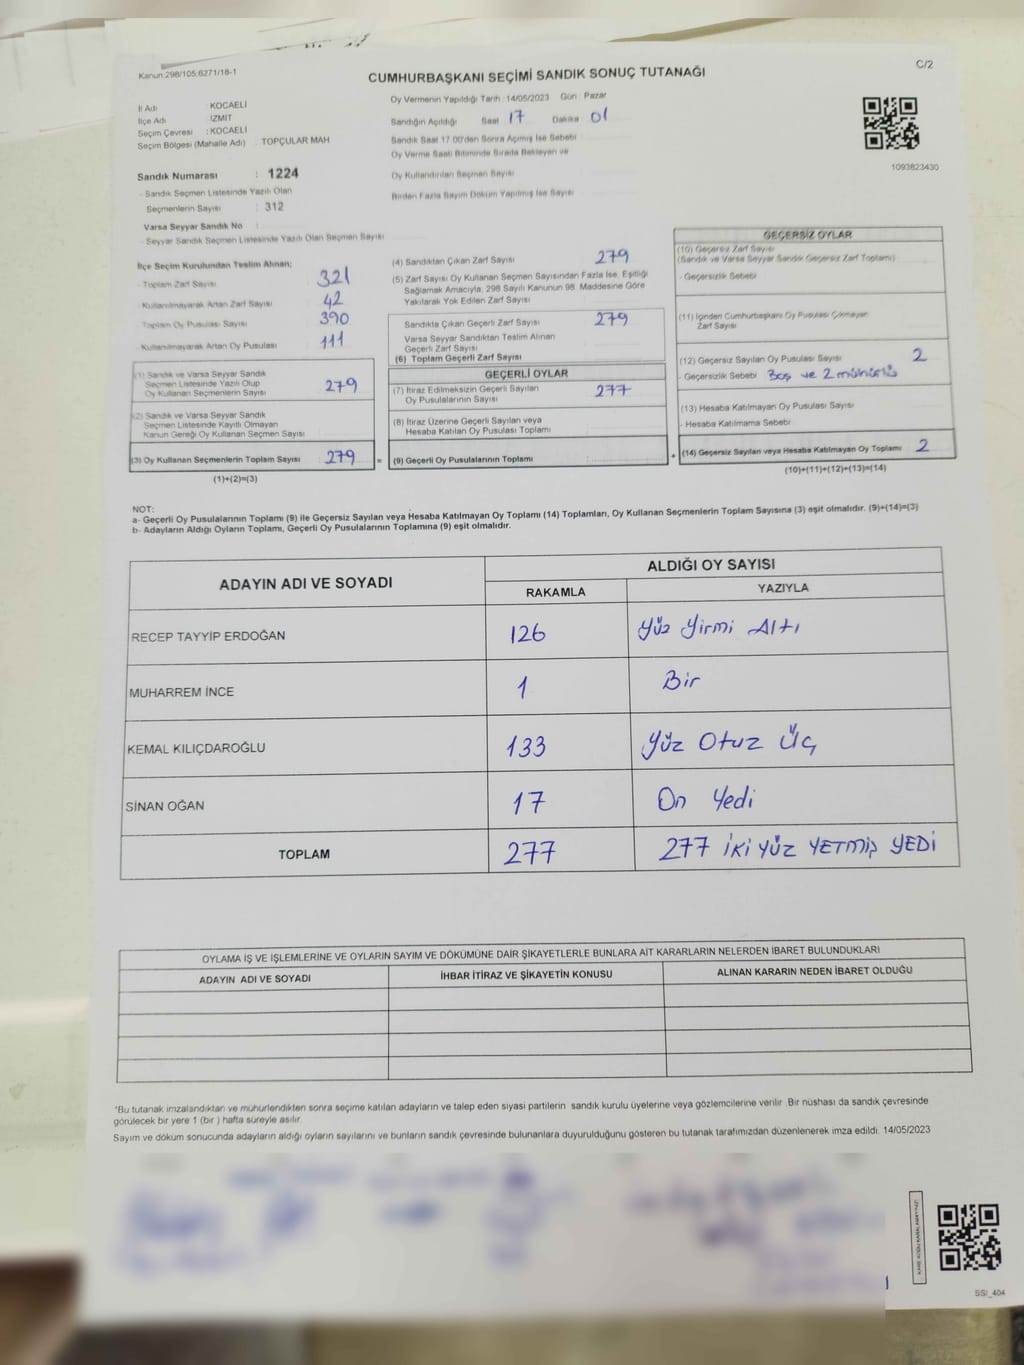 Kanun:298/105;6271/18-1
C/2
CUMHURBAŞKANI SEÇİMİ SANDIK SONUÇ TUTANAĞI
İl Adı : KOCAELİ
İlçe Adı : İZMİT
Seçim Çevresi : KOCAELİ
Seçim Bölgesi (Mahalle Adı) : TOPÇULAR MAH
Sandık Numarası : 1224
- Sandık Seçmen Listesinde Yazılı Olan
Seçmenlerin Sayısı : 312
Varsa Seyyar Sandık No :
- Seyyar Sandık Seçmen Listesinde Yazılı Olan Seçmen Sayısı
Oy Vermenin Yapıldığı Tarih :14/05/2023 Gün : Pazar
Sandığın Açıldığı Saat 17 Dakika 01
Sandık Saat 17.00'den Sonra Açılmış İse Sebebi
Oy Verme Saati Bitiminde Sırada Bekleyen ve
Oy Kullandırılan Seçmen Sayısı
Birden Fazla Sayım Döküm Yapılmış İse Sayısı
1093823430
İlçe Seçim Kurulundan Teslim Alınan;
- Toplam Zarf Sayısı 321
- Kullanılmayarak Artan Zarf Sayısı 42
Toplam Oy Pusulası Sayısı 390
- Kullanılmayarak Artan Oy Pusulası 111
(1) Sandık ve Varsa Seyyar Sandık
Seçmen Listesinde Yazılı Olup
Oy Kullanan Seçmenlerin Sayısı 279
(2) Sandık ve Varsa Seyyar Sandık
Seçmen Listesinde Kayıtlı Olmayan
Kanun Gereği Oy Kullanan Seçmen Sayısı
(3) Oy Kullanan Seçmenlerin Toplam Sayısı 279 =
(1)+(2)=(3)
(4) Sandıktan Çıkan Zarf Sayısı 279
(5) Zarf Sayısı Oy Kullanan Seçmen Sayısından Fazla İse, Eşitliği
Sağlamak Amacıyla, 298 Sayılı Kanunun 98. Maddesine Göre
Yakılarak Yok Edilen Zarf Sayısı
Sandıkta Çıkan Geçerli Zarf Sayısı 279
Varsa Seyyar Sandıktan Teslim Alınan
Geçerli Zarf Sayısı
(6) Toplam Geçerli Zarf Sayısı
GEÇERLİ OYLAR
(7) İtiraz Edilmeksizin Geçerli Sayılan
Oy Pusulalarının Sayısı 277
(8) İtiraz Üzerine Geçerli Sayılan veya
Hesaba Katılan Oy Pusulası Toplamı
(9) Geçerli Oy Pusulalarının Toplamı +
GEÇERSİZ OYLAR
(10) Geçersiz Zarf Sayısı
(Sandık ve Varsa Seyyar Sandık Geçersiz Zarf Toplamı)
- Geçersizlik Sebebi
(11) İçinden Cumhurbaşkanı Oy Pusulası Çıkmayan
Zarf Sayısı
(12) Geçersiz Sayılan Oy Pusulası Sayısı 2
- Geçersizlik Sebebi Boş ve 2 mühürlü
(13) Hesaba Katılmayan Oy Pusulası Sayısı
- Hesaba Katılmama Sebebi
(14) Geçersiz Sayılan veya Hesaba Katılmayan Oy Toplamı 2
(10)+(11)+(12)+(13)=(14)
NOT:
a- Geçerli Oy Pusulalarının Toplamı (9) ile Geçersiz Sayılan veya Hesaba Katılmayan Oy Toplamı (14) Toplamları, Oy Kullanan Seçmenlerin Toplam Sayısına (3) eşit olmalıdır. (9)+(14)=(3)
b- Adayların Aldığı Oyların Toplamı, Geçerli Oy Pusulalarının Toplamına (9) eşit olmalıdır.
ADAYIN ADI VE SOYADI
ALDIĞI OY SAYISI
RAKAMLA YAZIYLA
RECEP TAYYİP ERDOĞAN 126 Yüz Yirmi Altı
MUHARREM İNCE 1 Bir
KEMAL KILIÇDAROĞLU 133 Yüz Otuz Üç
SİNAN OĞAN 17 On Yedi
TOPLAM 277 277 İKİ YÜZ YETMİŞ YEDİ
OYLAMA İŞ VE İŞLEMLERİNE VE OYLARIN SAYIM VE DÖKÜMÜNE DAİR ŞİKAYETLERLE BUNLARA AİT KARARLARIN NELERDEN İBARET BULUNDUKLARI
ADAYIN ADI VE SOYADI İHBAR İTİRAZ VE ŞİKAYETİN KONUSU ALINAN KARARIN NEDEN İBARET OLDUĞU
*Bu tutanak imzalandıktan ve mühürlendikten sonra seçime katılan adayların ve talep eden siyasi partilerin sandık kurulu üyelerine veya gözlemcilerine verilir .Bir nüshası da sandık çevresinde
görülecek bir yere 1 (bir ) hafta süreyle asılır.
Sayım ve döküm sonucunda adayların aldığı oyların sayılarını ve bunların sandık çevresinde bulunanlara duyurulduğunu gösteren bu tutanak tarafımızdan düzenlenerek imza edildi. 14/05/2023
SSI_404